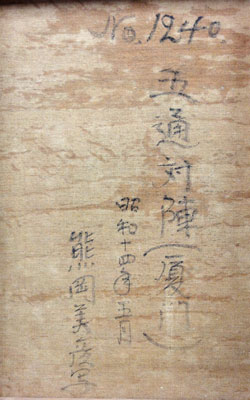 No. 1240.
五通対陣(厦門)
昭和十四年五月
熊岡美彦写